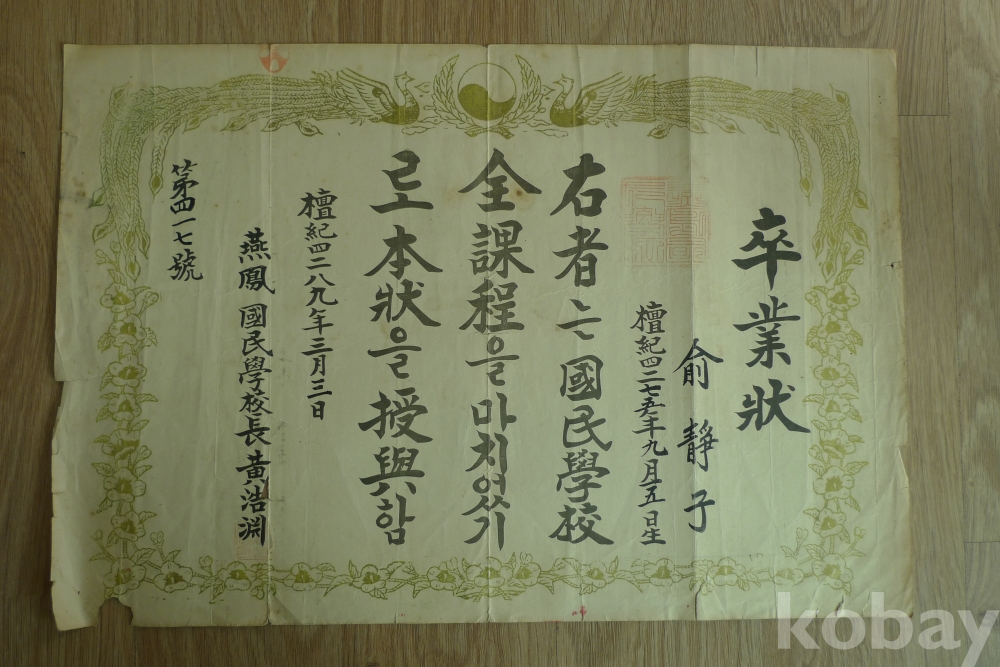 卒業狀
俞靜子
檀紀四二七五年九月五日生
右者는國民學校
全課程을마치엿쓰기
로本狀을授與함
檀紀四二八九年三月三日
燕鳳國民學校長黃浩淵
第四一七號
kobay